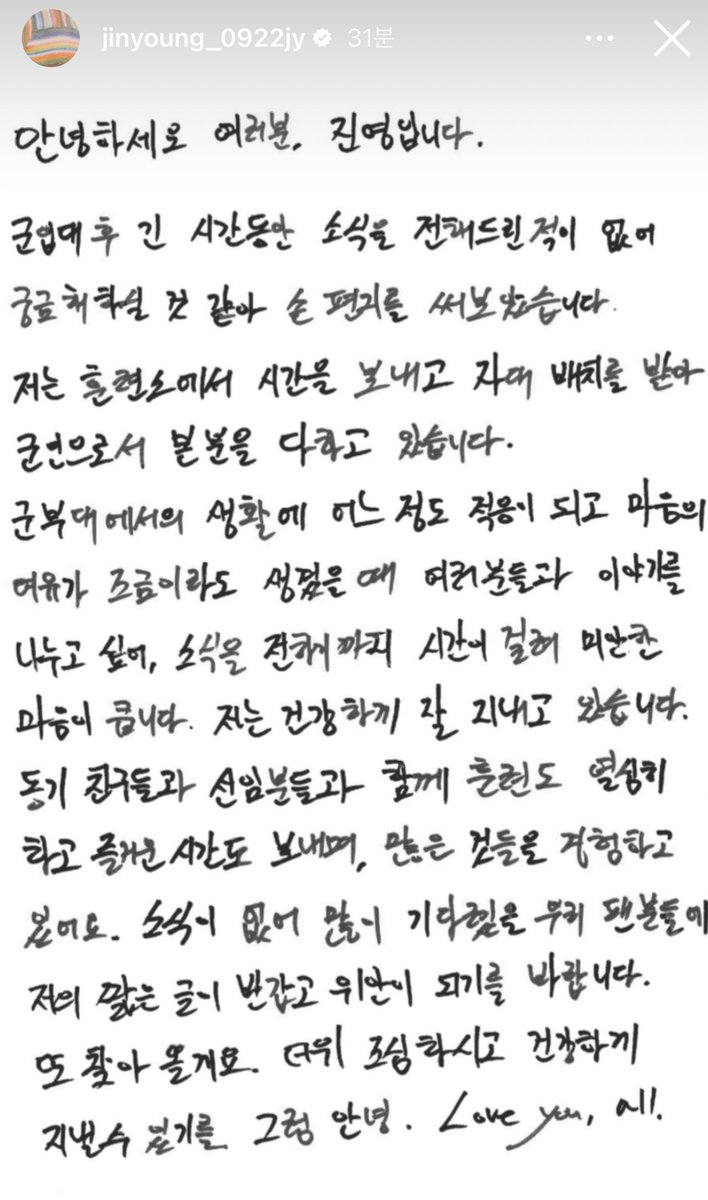 jinyoung_0922jy 31분
안녕하세요 여러분, 진영입니다.
군입대 후 긴 시간동안 소식을 전해드린적이 없어
궁금해하실 것 같아 손 편지를 써보았습니다.
저는 훈련소에서 시간을 보내고 자대 배치를 받아
군인으로서 본분을 다하고 있습니다.
군부대에서의 생활에 어느 정도 적응이 되고 마음의
여유가 조금이라도 생겼을 때 여러분들과 이야기를
나누고 싶어, 소식을 전하기까지 시간이 걸려 미안한
마음이 큽니다. 저는 건강하게 잘 지내고 있습니다.
동기 친구들과 선임분들과 함께 훈련도 열심히
하고 즐거운 시간도 보내며, 많은 것들을 경험하고
있어요. 소식이 없어 많이 기다렸을 우리 팬분들에
저의 짧은 글이 반갑고 위안이 되기를 바랍니다.
또 찾아 올게요. 더위 조심하시고 건강하게
지낼수 있기를 그럼 안녕. Love you, all.